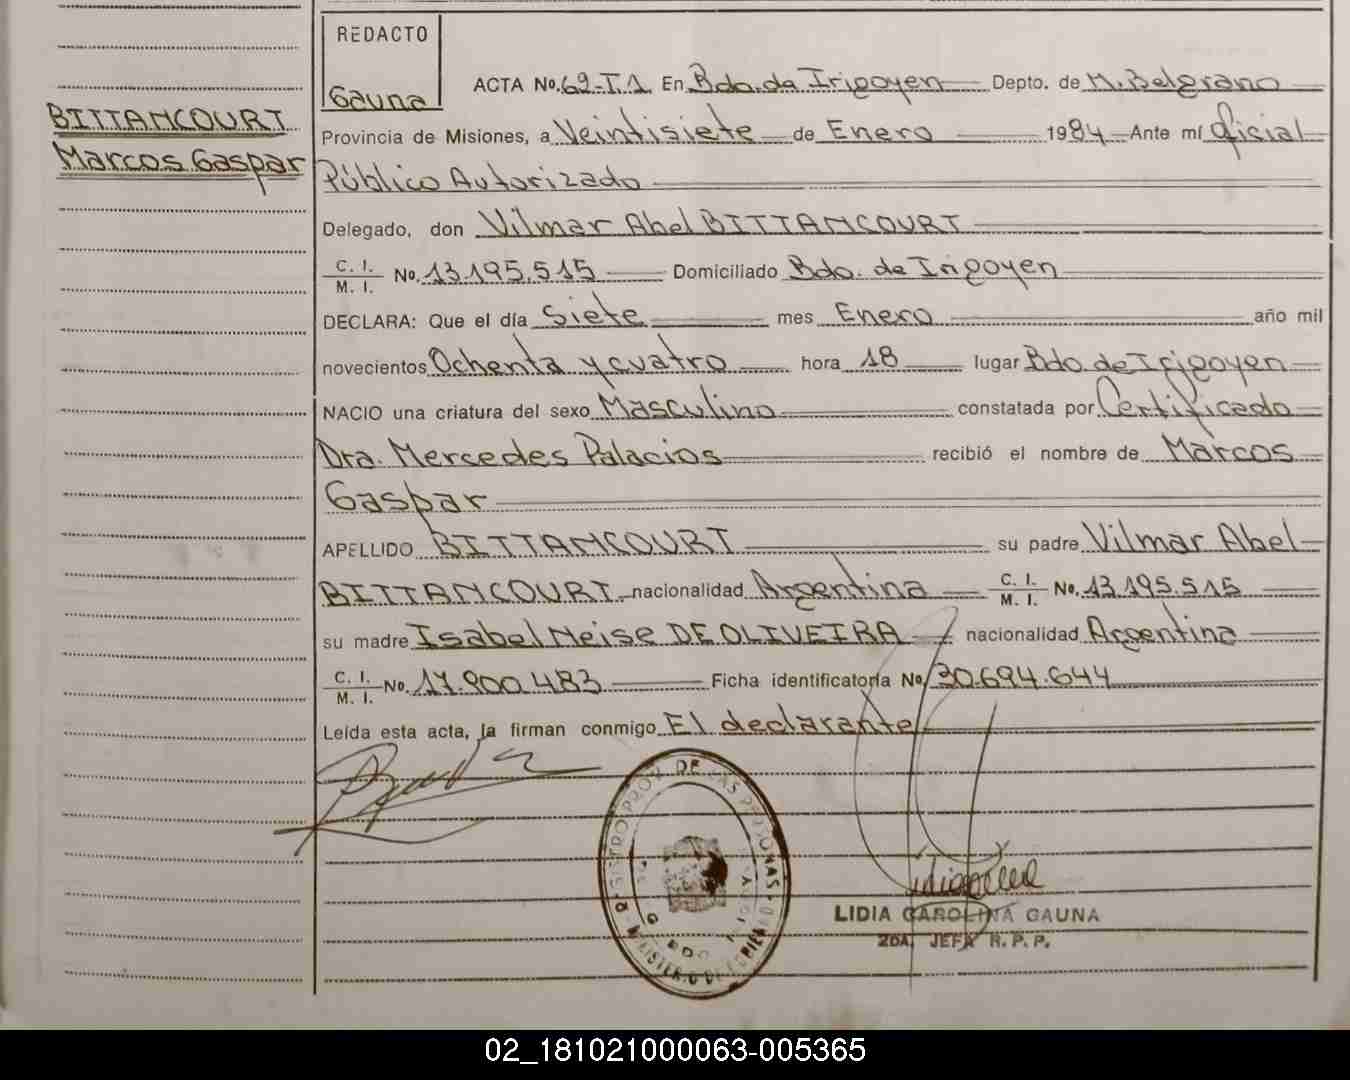 REDACTO
Gauna
ACTA No. 62-T.1 En Bdo. de Irigoyen Depto. de M. Belgrano
BITTANCOURT
Marcos Gaspar
Provincia de Misiones, a Veintisiete de Enero 1984 Ante mí Oficial
Público Autorizado
Delegado, don Vilmar Abel BITTANCOURT
C. I.
M. I. No. 13.195.515 Domiciliado Bdo. de Irigoyen
DECLARA: Que el día Siete mes Enero año mil
novecientos Ochenta y cuatro hora 18 lugar Bdo de Irigoyen
NACIO una criatura del sexo Masculino constatada por Certificado
Dra. Mercedes Palacios recibió el nombre de Marcos
Gaspar
APELLIDO BITTANCOURT su padre Vilmar Abel
BITTANCOURT nacionalidad Argentina C. I. M. I. No. 13.195.515
su madre Isabel Neise DE OLIVEIRA nacionalidad Argentina
C. I.
M. I. No. 17.900.483 Ficha identificatoria No. 30.694.644
Leída esta acta, la firman conmigo El declarante
LIDIA CAROLINA GAUNA
2DA. JEFA R. P. P.
02_181021000063-005365